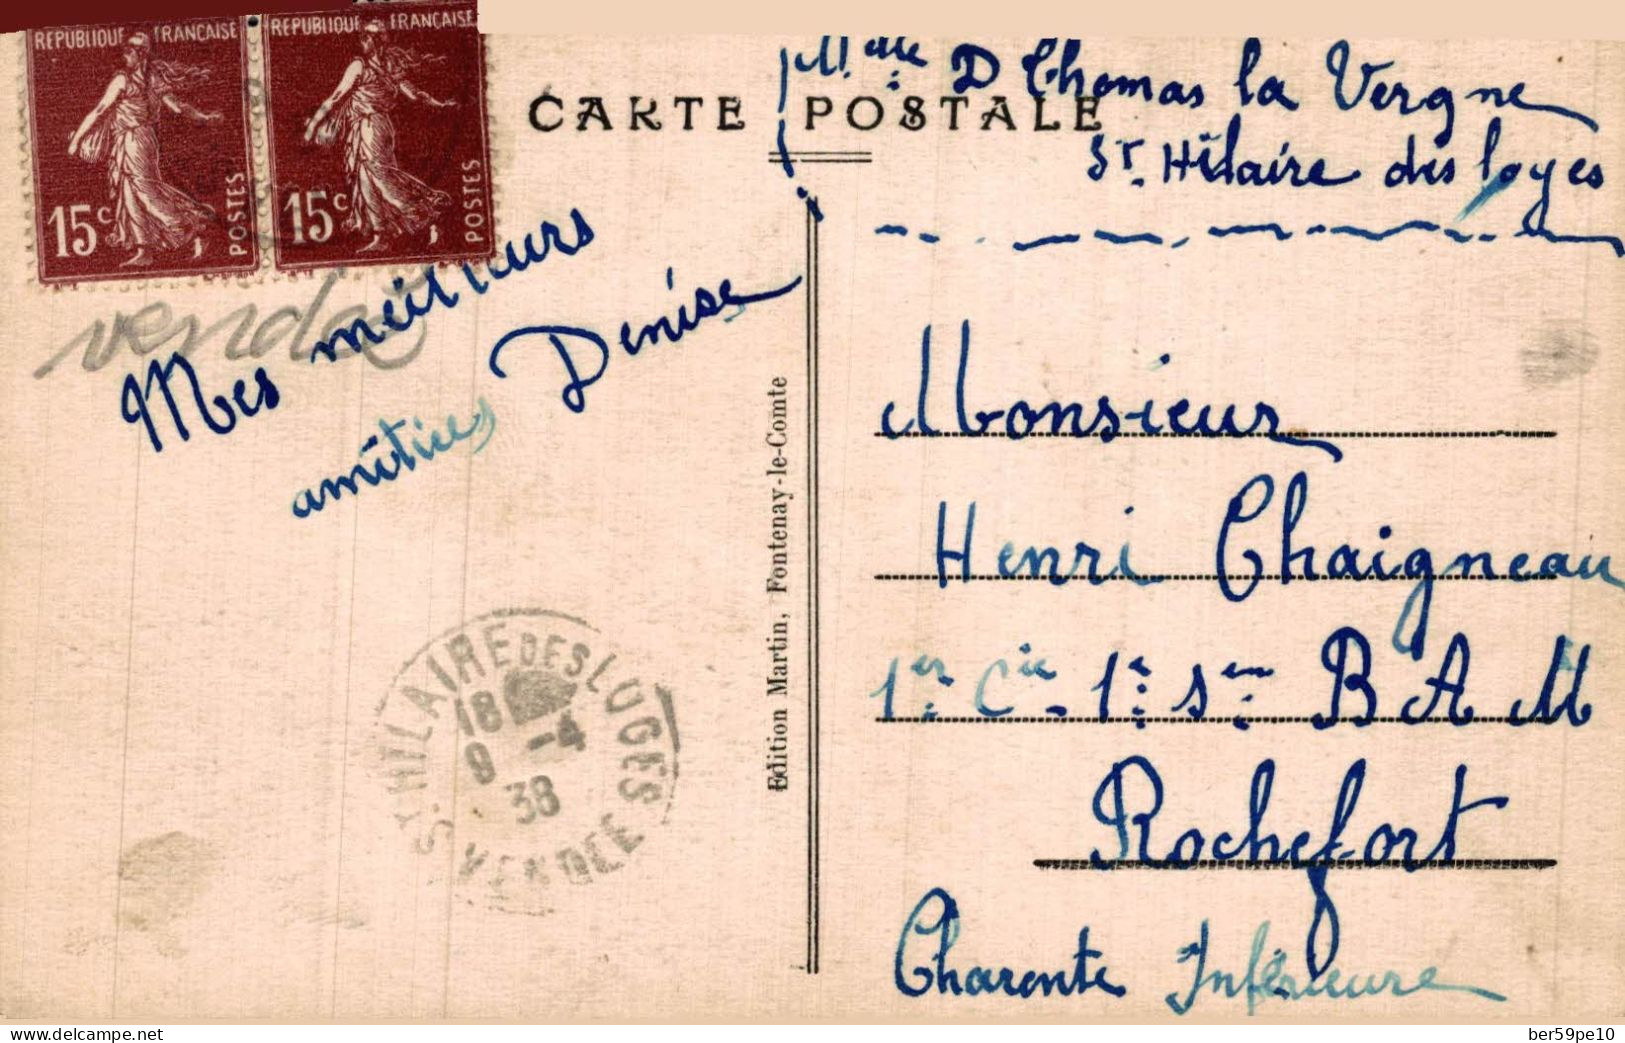 REPUBLIQUE FRANÇAISE
15c POSTES
REPUBLIQUE FRANÇAISE
15c POSTES
CARTE POSTALE
Melle D Thomas la Vergne
St. Hilaire des loges
vendée
Mes meilleurs
amitiés Denise
Edition Martin, Fontenay-le-Comte
Monsieur
Henri Chaigneau
1er Cie 1e Sen B A M
Rochefort
Charente Inférieure
ST HILAIRE DES LOGES
18
9 -4
38
VENDEE
delcampe.net
ber59pe10